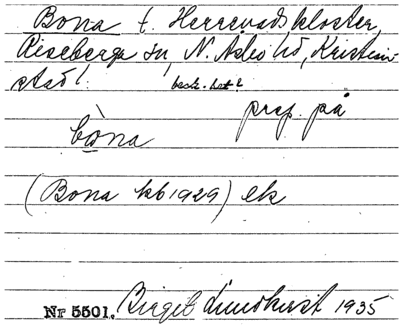 Bona t. Herrevadskloster,
Riseberga sn, N. Åsbo hd, Kristian-
stad l.
prep. på
bòna
(Bona kb 1929) ek
Nr 5501. Birgit Lundkvist 1935